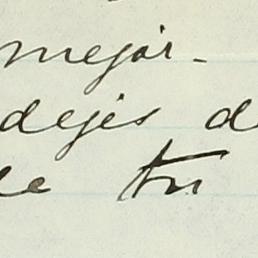 mejor.
dejes d
le tu